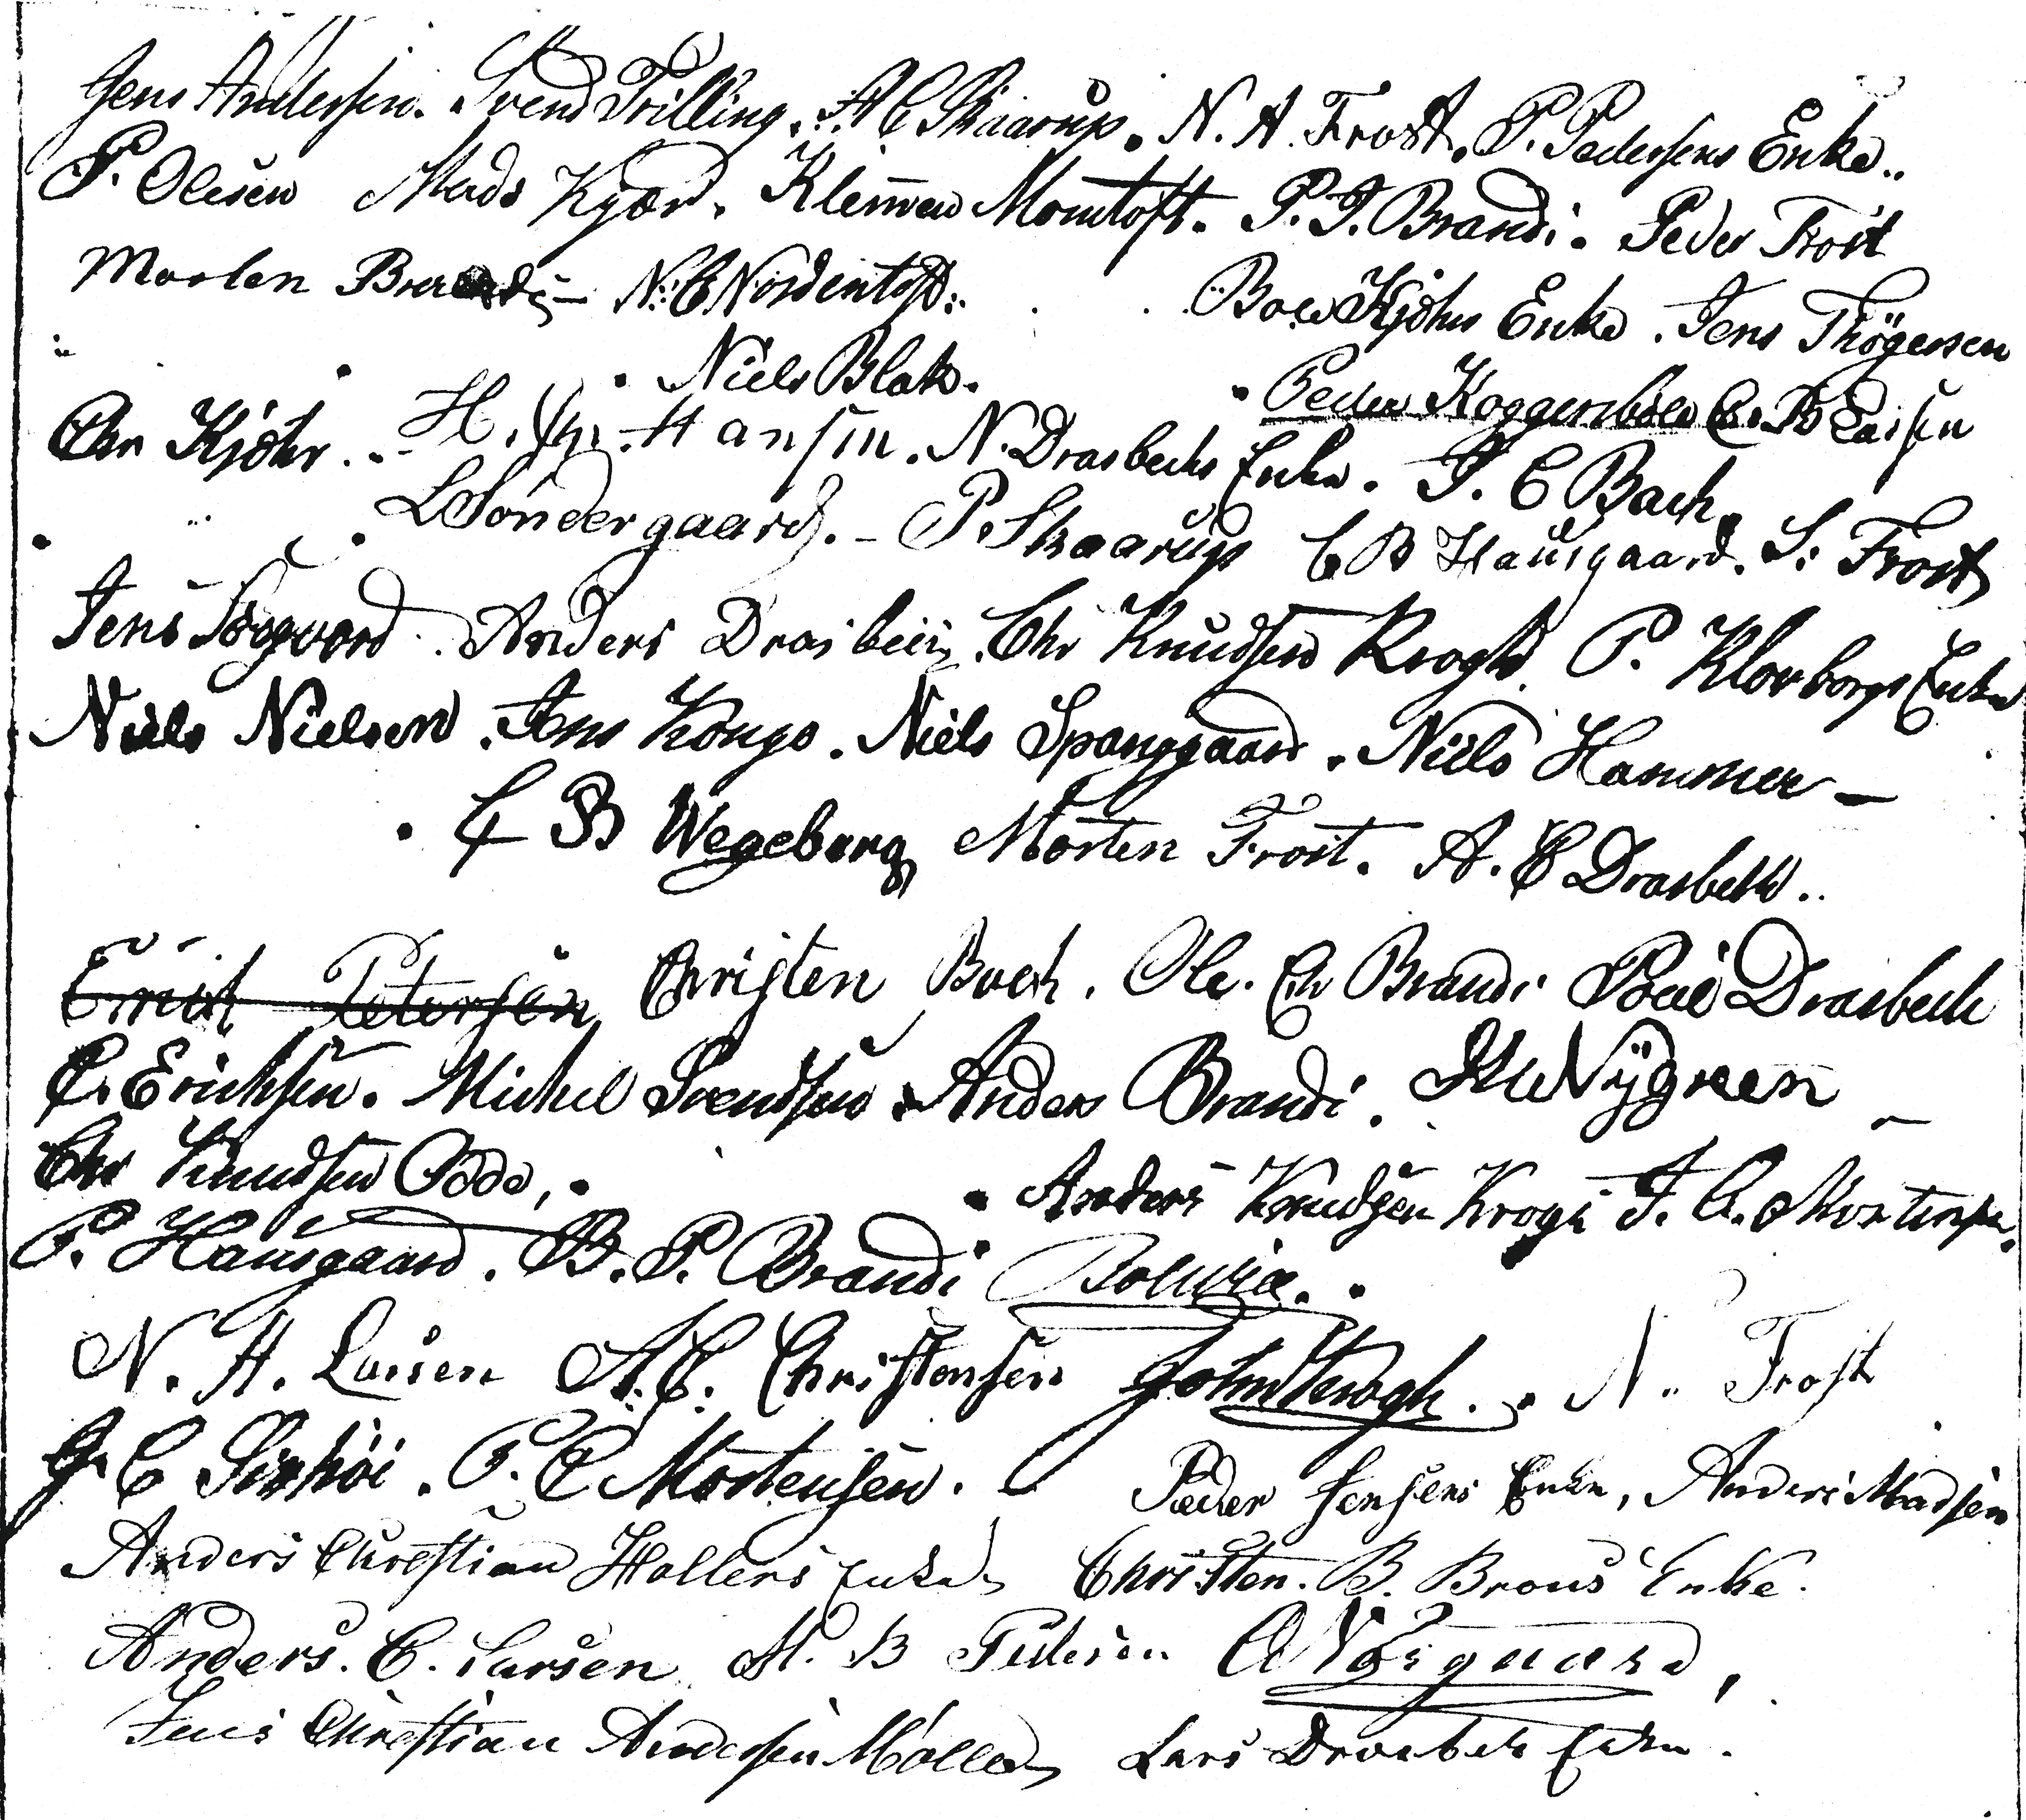 Jens Andersen. Svend Trilling. A C Skaarup. N. A. Frost. P. Pedersens Enke..
P. Olesen Mads Kjær. Klemen Momtoft. P. J. Brandi. Peder Frost
Morten Brandi – N. C Nordentoft. Boes Kjöhrs Enke. Jens Thögersen
Niels Blak. Peder Koggersböl C. B Larsen
Chr Kjöhr. H. Chr. Hansen. N. Drasbechs Enke. J. C Bach.
L Söndergaard. – P. Skaarup C B Hausgaard. S. Frost
Jens Anders Drasbein. Chr Knudsen Krogh. P. Kloborgs Enke
Niels Nielsen. Jens Konge. Niels Spanggaard. Niels Hammer –
C B Wegeberg Morten Frost. A. C Drasbek..
Ernst Petersen Christen Buch. Ole. Chr Brandi Poul Drasbech
C. Ericksen. Michel Svendsen. Anders Brandi. Nÿgreen –
Chr Knudsen Odde,. Anders Knudsen Krogh J. C. Mortensen.
P. Hausgaard. B. P. Brandi
N. A. Larsen A. C. Christensen John Krogh. N. Frost
C Sinhöi. P. C Mortensen. Peder Jensens Enke, Anders Madsen
Anders Christian Hollers Enke Christen. B. Brous Enke.
Anders. C. Larsen M. B Pedersen C Nörgaard,
Jens Christian Andersen Möller Lars Drasbek Enke.